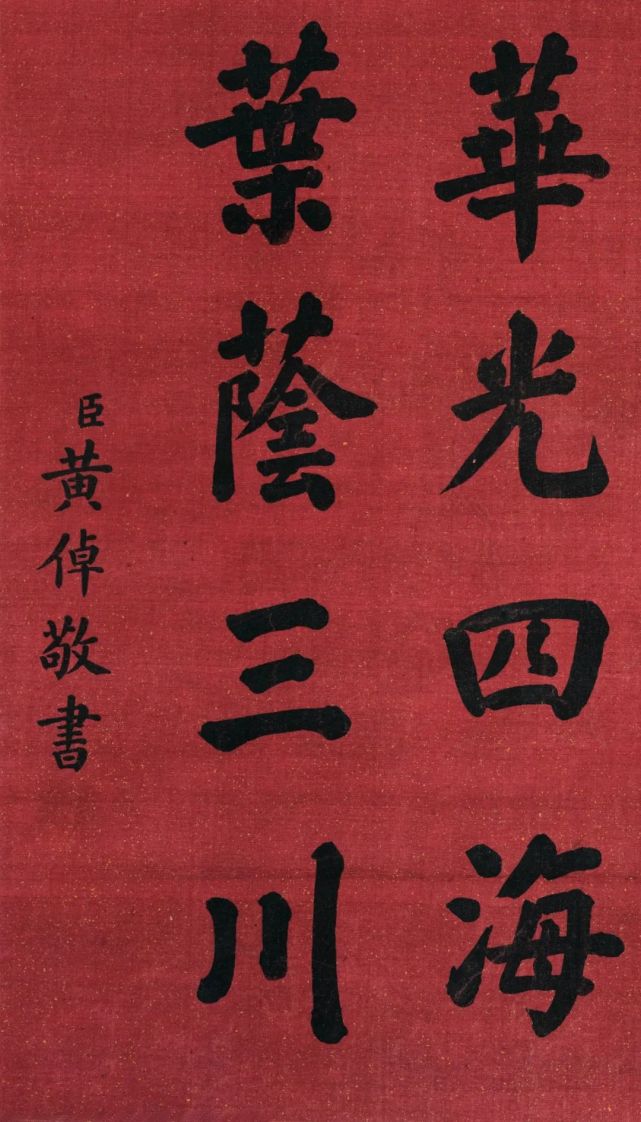 華光四海
葉蔭三川
臣黃倬敬書